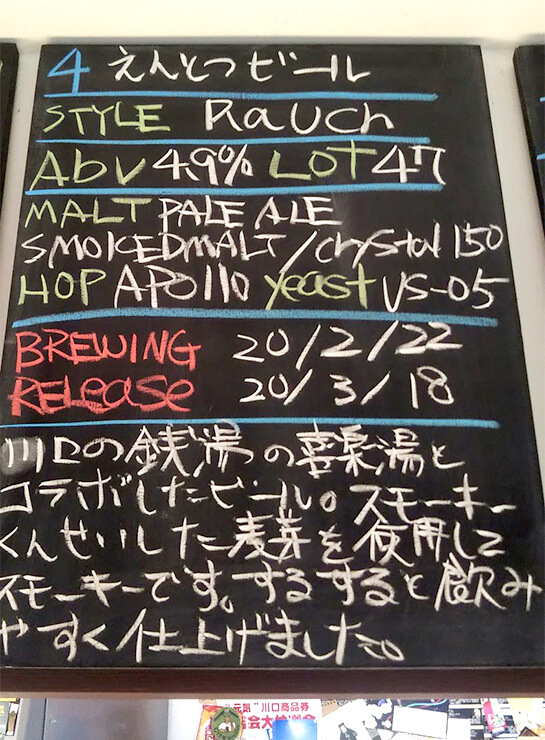 4 えんとつビール
STYLE Rauch
Abv 4.9% LOT 47
MALT PALE ALE
SMOKEDMALT/crystal 150
HOP APOllO yeast US-05
BREWING 20/2/22
RELease 20/3/18
川口の銭湯の喜楽湯と
コラボしたビール。スモーキー
くんせいした麦芽を使用して
スモーキーです。するすると飲み
やすく仕上げました。
"元気"川口商品券